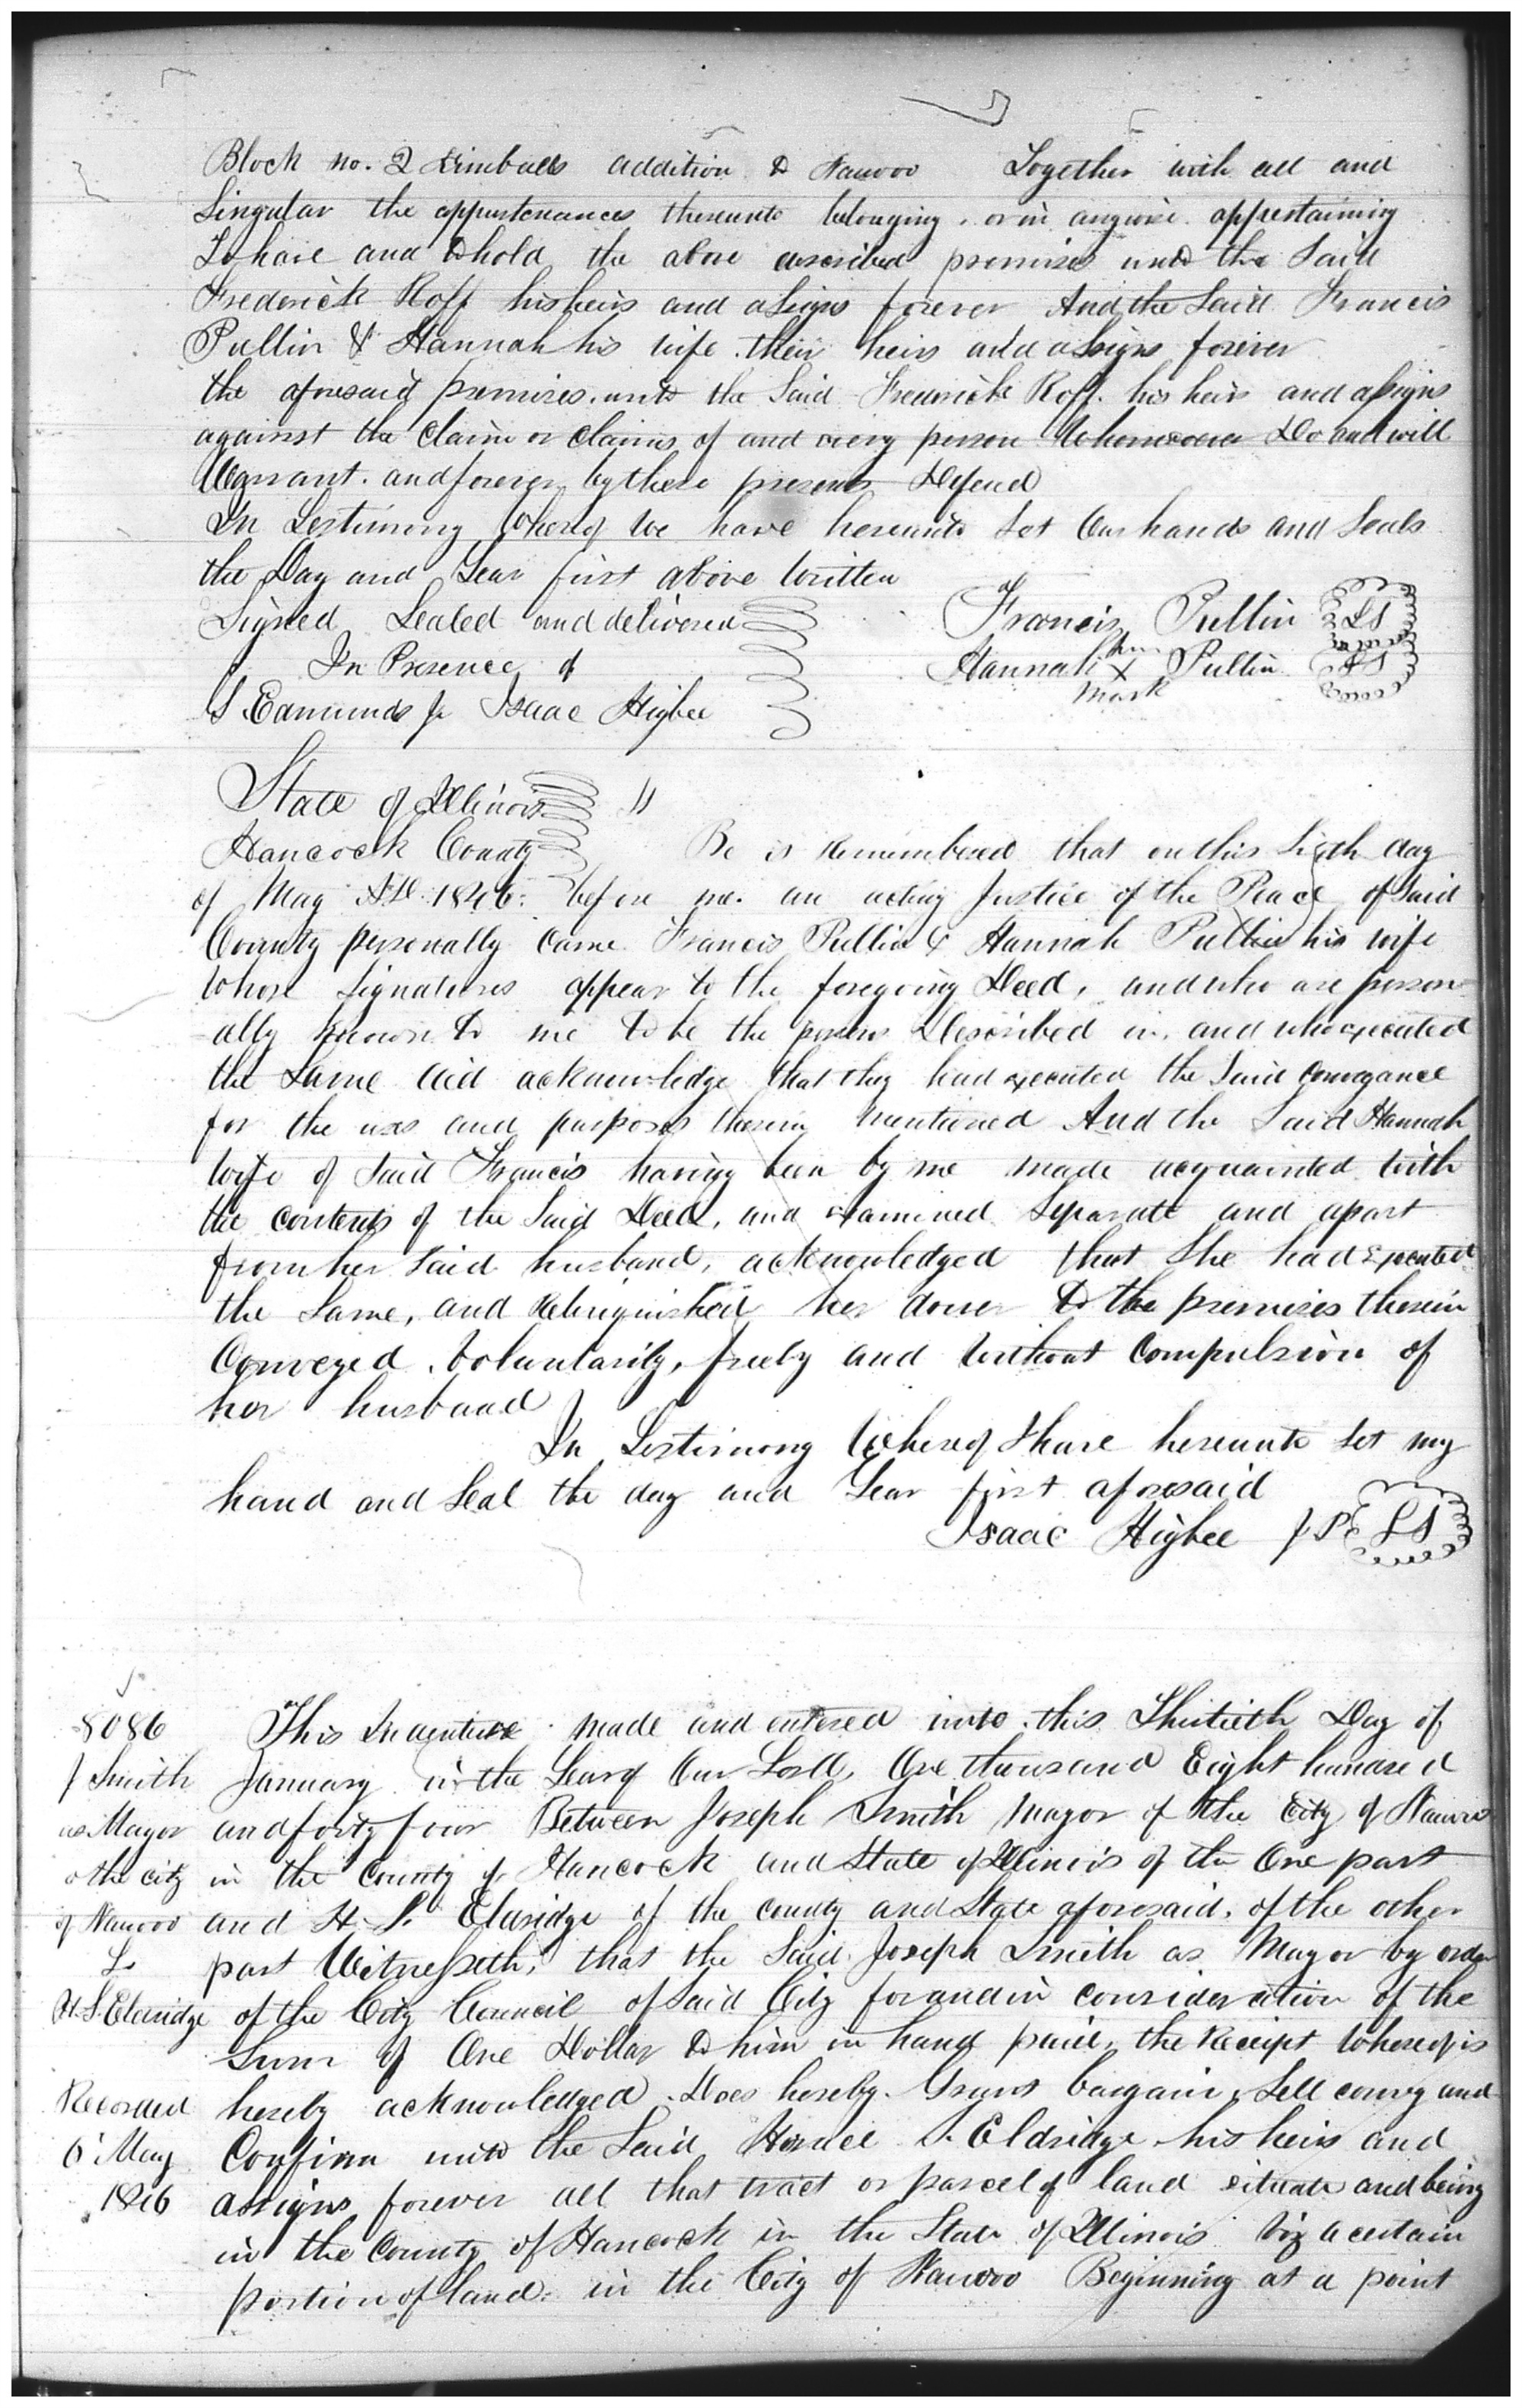 Block no. 2 Kimballs addition to Nauvoo Together with all and
Singular the appurtenances thereunto belonging, or in anywise appertaining
To have and to hold the above described premises unto the Said
Frederick Roff his heirs and assigns forever And the Said Francis
Pullin & Hannah his wife their heirs and assigns forever
the aforesaid premises unto the Said Frederick Roff. his heirs and assigns
against the Claim or claims of and every person Whomsoever Do and will
Warrant. and forever by these presents Defend
In Testimony Whereof We have hereunto Set Our hands and Seals
the Day and Year first above Written
Signed Sealed and delivered
In Presence of
S. Edmunds Jr Isaac Higbee
Francis Pullin LS
her
Hannah X Pullin LS
mark
State of Illinois
Hancock County Be it Remembered that on this Sixth day
of May AD. 1846. before me. an acting Justice of the Peace of Said
County personally Came Francis Pullin & Hannah Pullin his wife
whose Signatures appear to the foregoing Deed, and who are person-
-ally known to me to be the persons Described in, and who executed
the Same did acknowledge that they had executed the Said Conveyance
for the uses and purposes therein Mentioned And the Said Hannah
Wife of Said Francis having been by me made acquainted with
the contents of the Said Deed, and examined Separate and apart
from her Said husband, acknowledged that She had Executed
the Same, and Relinquished her dower to the premises therein
Conveyed, Voluntarily, freely and Without Compulsion of
her husband
In Testimony Whereof I have hereunto Set my
hand and Seal the day and Year first aforesaid
Isaac Higbee J.P. LS
8086
J Smith
as Mayor
o the city
of Nauvoo
To
H. S. Eldridge
Recorded
6 May
1846
This Indenture made and entered into this Thirtieth Day of
January in the Year of Our Lord, One thousand Eight hundred
and forty four Between Joseph Smith Mayor of the City of Nauvoo
in the County of Hancock and State of Illinois of the One part
and H. S. Eldridge of the county and State aforesaid, of the other
part Witnesseth, that the Said Joseph Smith as Mayor by order
of the City Council of Said City for and in consideration of the
Sum of One Dollar to him in hand paid, the Receipt Whereof is
hereby acknowledged. Does hereby. Grant bargain, Sell convey and
Confirm unto the Said Horace S. Eldridge his heirs and
assigns forever all that tract or parcel of land situate and being
in the County of Hancock in the State of Illinois Viz a certain
portion of land. in the City of Nauvoo Beginning at a point